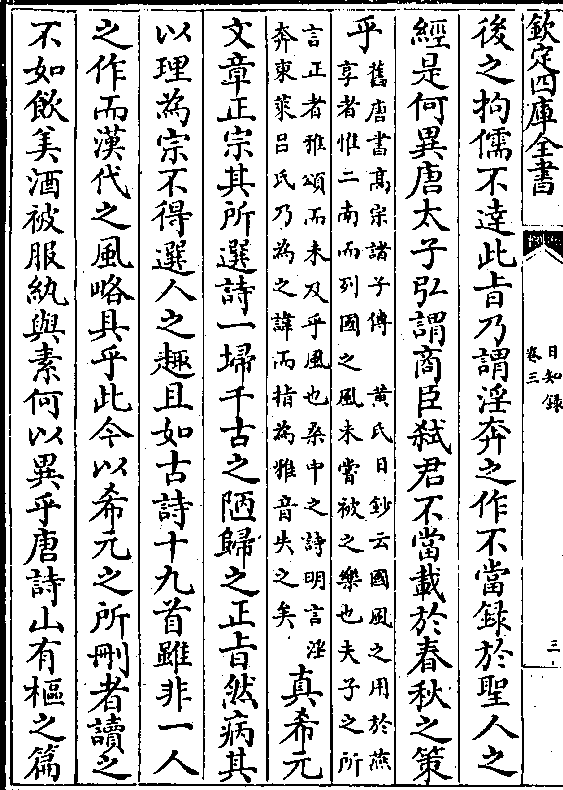 欽定四庫全書
日知錄
卷三
三
後之拘儒不達此㫖乃謂淫奔之作不當録於聖人之
經是何異唐太子弘謂商臣弑君不當載於春秋之策
乎
舊唐書高宗諸子傳　黄氏日鈔云國風之用於燕
享者惟二南而列國之風未嘗被之樂也夫子之所
言正者雅頌而未及乎風也桑中之詩明言淫
奔東萊吕氏乃為之諱而指為雅音失之矣
真希元
文章正宗其所選詩一埽千古之陋歸之正㫖然病其
以理為宗不得選人之趣且如古詩十九首雖非一人
之作而漢代之風略具乎此今以希元之所刪者讀之
不如飲美酒被服紈與素何以異乎唐詩山有樞之篇